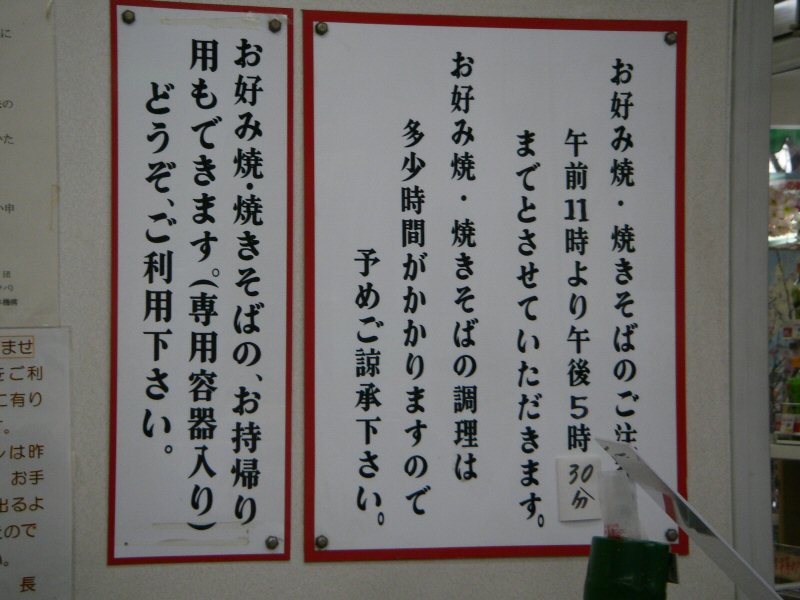 お好み焼・焼きそばのご注
午前11時より午後5時30分
までとさせていただきます。
お好み焼・焼きそばの調理は
多少時間がかかりますので
予めご諒承下さい。
お好み焼・焼きそばの、お持帰り
用もできます。(専用容器入り)
どうぞ、ご利用下さい。
ませ
をご利
に有り
す。
ンは昨
お手
出るよ
たので
い。
長